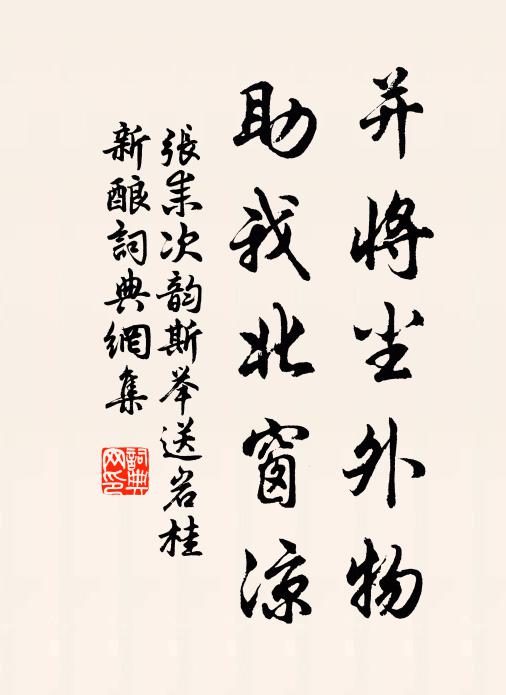 并将尘外物
助我北窗凉
張耒次韵斯举送岩桂
新酿詞典網集
詞典
网印